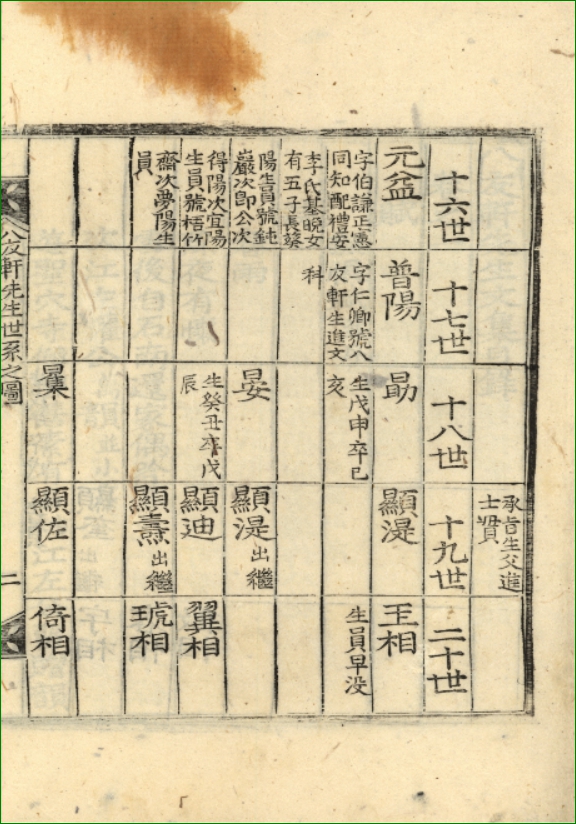 承旨生父進
士贒
十六世
十七世
十八世
十九世
二十世
元益
字伯謙正憲
同知配禮安
李氏基晩女
有五子長葵
陽生員號鈍
巖次卽公次
得陽次宜陽
生員號梧竹
齋次夢陽生
員
普陽
字仁卿號八
友軒生進文
科
生戊申卒己
亥
晏
生癸丑卒戊
辰
顯湜
顯湜 出繼
顯迪
顯燾 出繼
顯佐
王相
生員早没
翼相
琥相
倚相
八友軒先生世系之圖
二